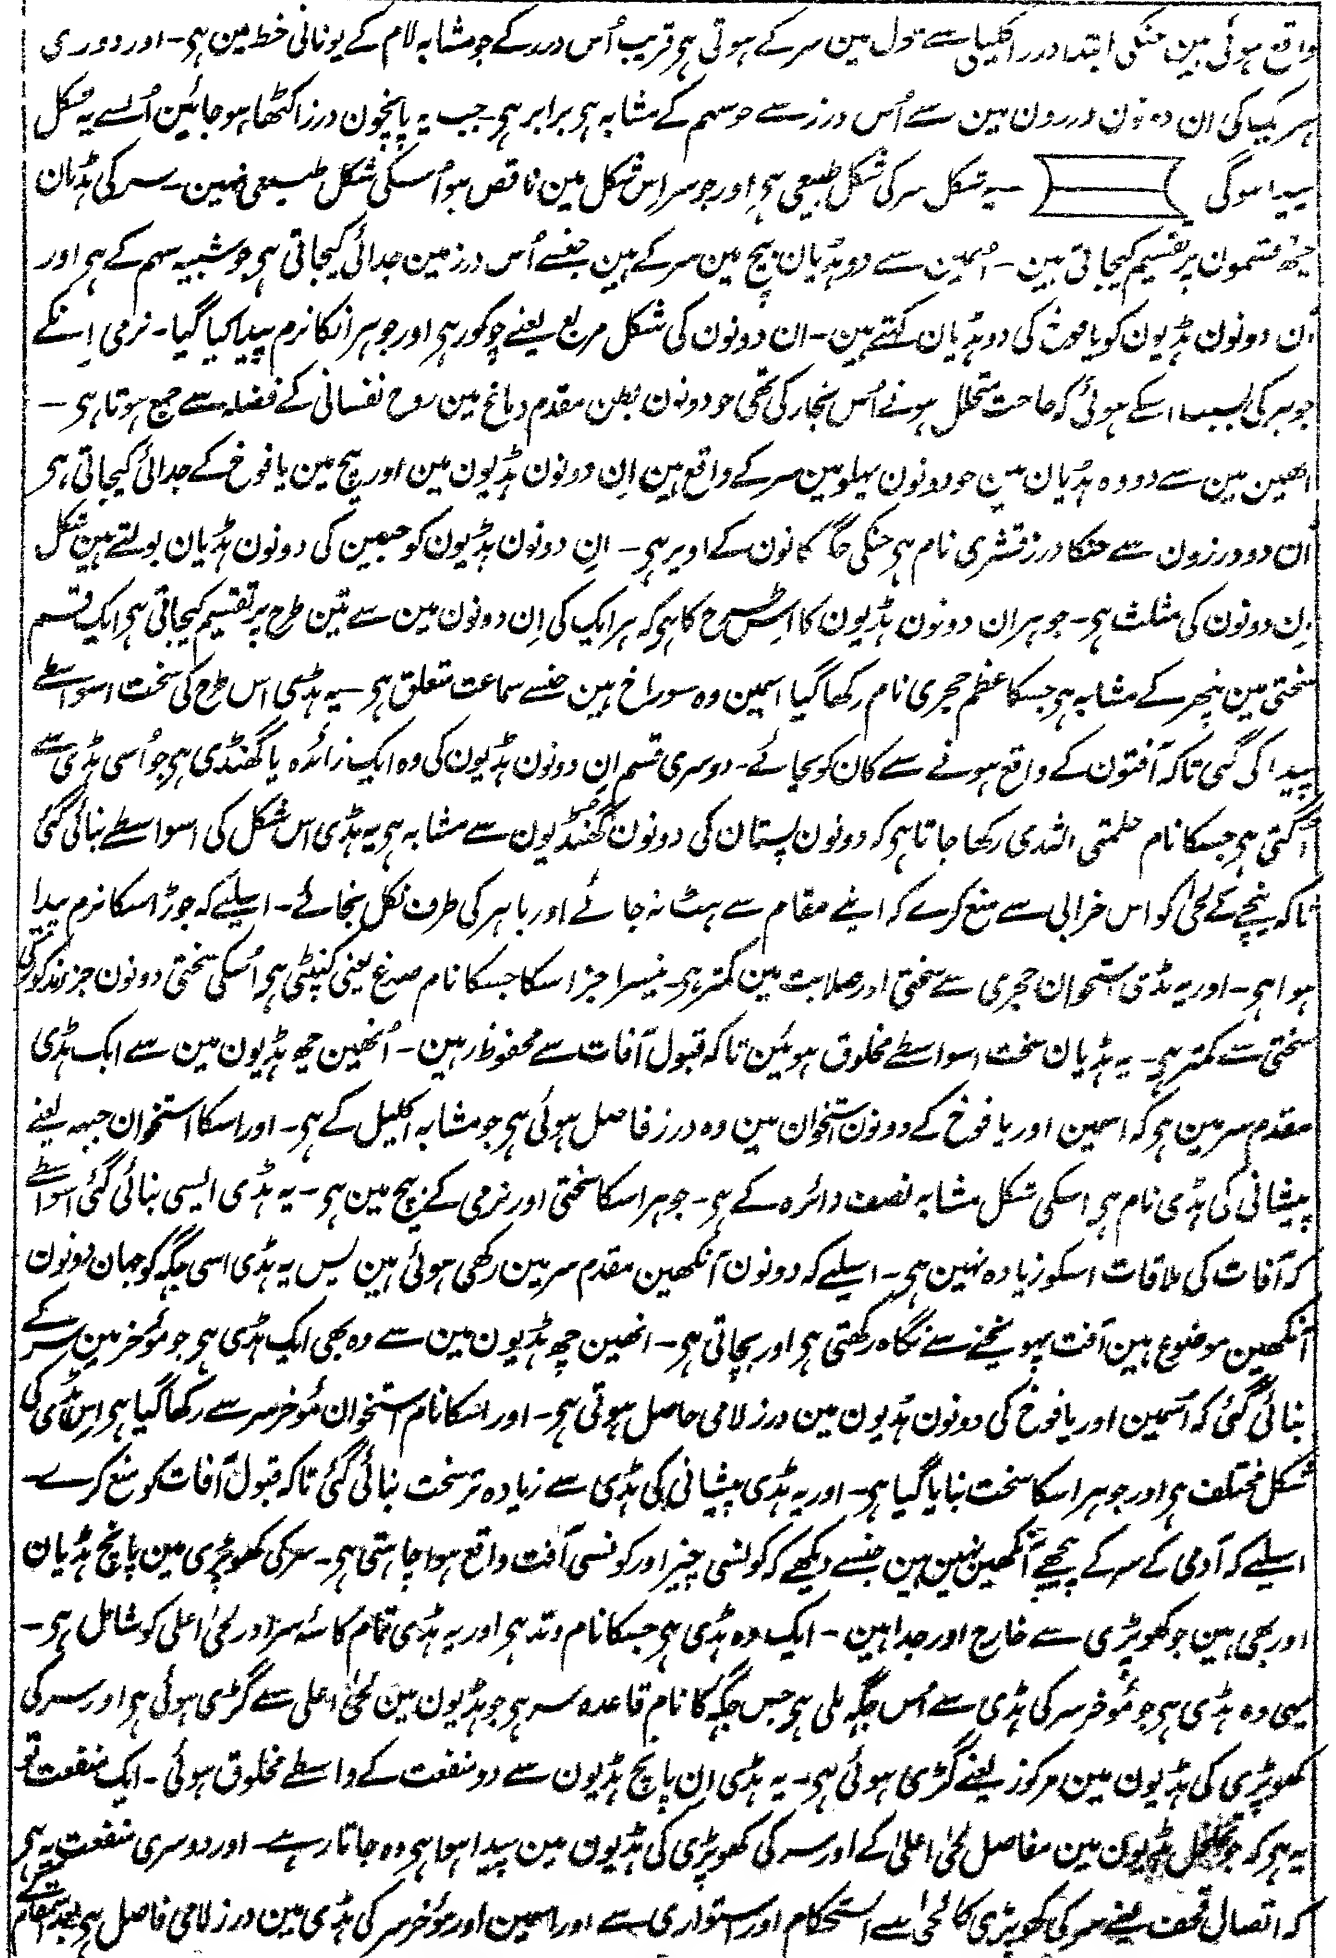 واقع ہوئی ہین جنکی ابتدا درز اکلیلی سے طول مین سر کے ہوتی ہی قریب اُس درز کے جو مشابہ لام کے یونانی خط مین ہی۔ اور دوری
ہر یک کی ان دونون درزون مین سے اُس درز سے جو سہم کے مشابہ ہی برابر ہی۔ جب یہ پانچون درز اکٹھا ہو جائین اُنسے یہ شکل
پیدا ہوگی ۔ یہ شکل سر کی شکل طبیعی ہی اور جو سر اِس شکل مین ناقص ہو اُسکی شکل طبیعی نہین۔ سر کی ہڈیان
چھ قسمون پر تقسیم کیجاتی ہین۔ اُنمین سے دو ہڈیان بیچ مین سر کے ہین جنسے اُس درز مین جدائی کیجاتی ہی جو شبیہ سہم کے ہی اور
اُن دونون ہڈیون کو یافوخ کی دو ہڈیان کہتے ہین۔ ان دونون کی شکل مربع یعنے چوکور ہی اور جوہر انکا نرم پیدا کیا گیا۔ نرمی اِنکے
جوہر کی بسبب اسکے ہوئی کہ حاجت متحلل ہونے اُس بخار کی تھی جو دونون بطن مقدم دماغ مین روح نفسانی کے فضلہ سے جمع ہوتا ہی۔
انھین مین سے دو وہ ہڈیان ہین جو دونون پہلو مین سر کے واقع ہین اِن دونون ہڈیون مین اور بیچ مین یافوخ کے جدائی کیجاتی ہی
اُن دو درزون سے جنکا درز قشری نام ہی جنکی جگہ کانون کے اوپر ہی۔ اِن دونون ہڈیون کو جبین کی دونون ہڈیان بولتے ہین شکل
اِن دونون کی مثلث ہی۔ جوہر ان دونون ہڈیون کا اِس طرح کا ہی کہ ہر ایک کی اِن دونون مین سے تین طرح پر تقسیم کیجاتی ہی ایک قسم
سختی مین پتھر کے مشابہ ہی جسکا عظم حجری نام رکھا گیا اسمین وہ سوراخ ہین جنسے سماعت متعلق ہی۔ یہ ہڈی اس طرح کی سخت اسواسطے
پیدا کی گئی تاکہ آفتون کے واقع ہونے سے کان کو بچائے۔ دوسری قسم ان دونون ہڈیون کی وہ ایک زائدہ یا گھنڈی ہی جو اُسی ہڈی سے
اُگتی ہی جسکا نام حلمتی الثدی رکھا جاتا ہی کہ دونون پستان کی دونون گھنڈیون سے مشابہ ہی یہ ہڈی اس شکل کی اسواسطے بنائی گئی
تاکہ نیچے کے لحیٰ کو اس خرابی سے منع کرے کہ اپنے مقام سے ہٹ نہ جائے اور باہر کی طرف نکل نجائے۔ اسلیے کہ جوڑ اسکا نرم پیدا
ہوا ہی۔ اور یہ ہڈی استخوان حجری سے سختی اور صلابت مین کمتر ہی۔ تیسرا جز اسکا جسکا نام صدغ یعنی کنپٹی ہی اُسکی سختی دونون جز مذکور کی
سختی سے کمتر ہی۔ یہ ہڈیان سخت اسواسطے مخلوق ہوئین تاکہ قبول آفات سے محفوظ رہین۔ اُنھین چھ ہڈیون مین سے ایک ہڈی
مقدم سر مین ہی کہ اسمین اور یافوخ کے دونون استخوان مین وہ درز فاصل ہوئی ہی جو مشابہ اکلیل کے ہی۔ اور اسکا استخوان جبہہ یعنے
پیشانی کی ہڈی نام ہی اسکی شکل مشابہ نصف دائرہ کے ہی۔ جوہر اسکا سختی اور نرمی کے بیچ مین ہی۔ یہ ہڈی ایسی بنائی گئی اسواسطے
کہ آفات کی ملاقات اسکو زیادہ نہین ہی۔ اسلیے کہ دونون آنکھین مقدم سر مین رکھی ہوئی ہین پس یہ ہڈی اسی جگہ کو جہان دونون
آنکھین موضوع ہین آفت پہونچنے سے نگاہ رکھتی ہی اور بچاتی ہی۔ انھین چھ ہڈیون مین سے وہ بھی ایک ہڈی ہی جو مؤخر مین سر کے
بنائی گئی کہ اُسمین اور یافوخ کی دونون ہڈیون مین درز لامی حاصل ہوتی ہی۔ اور اسکا نام استخوان مؤخر سر سے رکھا گیا ہی اِس ہڈی کی
شکل مختلف ہی اور جوہر اسکا سخت بنایا گیا ہی۔ اور یہ ہڈی پیشانی کی ہڈی سے زیادہ تر سخت بنائی گئی تاکہ قبول آفات کو منع کرے۔
اسلیے کہ آدمی کے سر کے پیچھے آنکھین نہین ہین جنسے دیکھے کہ کونسی چیز اور کونسی آفت واقع ہوا چاہتی ہی۔ سر کی کھوپڑی مین پانچ ہڈیان
اور بھی ہین جو کھوپڑی سے خارج اور جدا ہین۔ ایک وہ ہڈی ہی جسکا نام وتد ہی اور یہ ہڈی تمام کاسۂ سر اور لحیٰ اعلی کو شامل ہی۔
یہی وہ ہڈی ہی جو مؤخر سر کی ہڈی سے اُس جگہ ملی ہی جس جگہ کا نام قاعدہ سر ہی جو ہڈیون مین لحیٰ اعلی سے گڑی ہوئی ہی اور سر کی
کھوپڑی کی ہڈیون مین مرکوز یعنے گڑی ہوئی ہی۔ یہ ہڈی اِن پانچ ہڈیون سے دو منفعت کے واسطے مخلوق ہوئی۔ ایک منفعت تو
یہ ہی کہ جو ہڈیون مین مفاصل لحیٰ اعلیٰ کے اور سر کی کھوپڑی کی ہڈیون مین پیدا ہوا ہی وہ جاتا رہے۔ اور دوسری منفعت یہ ہی
کہ اتصال قحف یعنے سر کی کھوپڑی کا لحیٰ سے استحکام اور استواری سے اور اسمین اور مؤخر سر کی ہڈی مین درز لامی فاصل ہی بعد